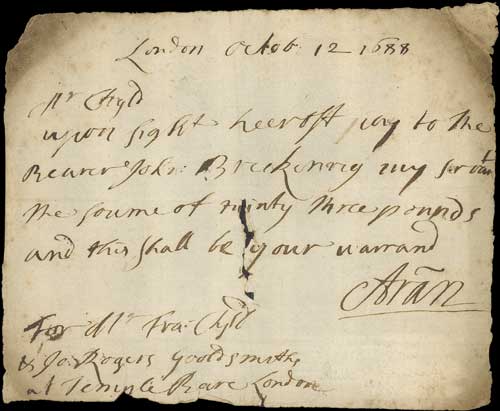 London Octob: 12 1688
Mr Chyld
upon sight heeroff pay to the
Bearer John: Breckinrig my servant
the soume of tuinty three pounds
and this shall be your warrand
Arān
For Mr Fra: Chyld
& Jo: Rogers Gooldsmiths
at Temple Bare London